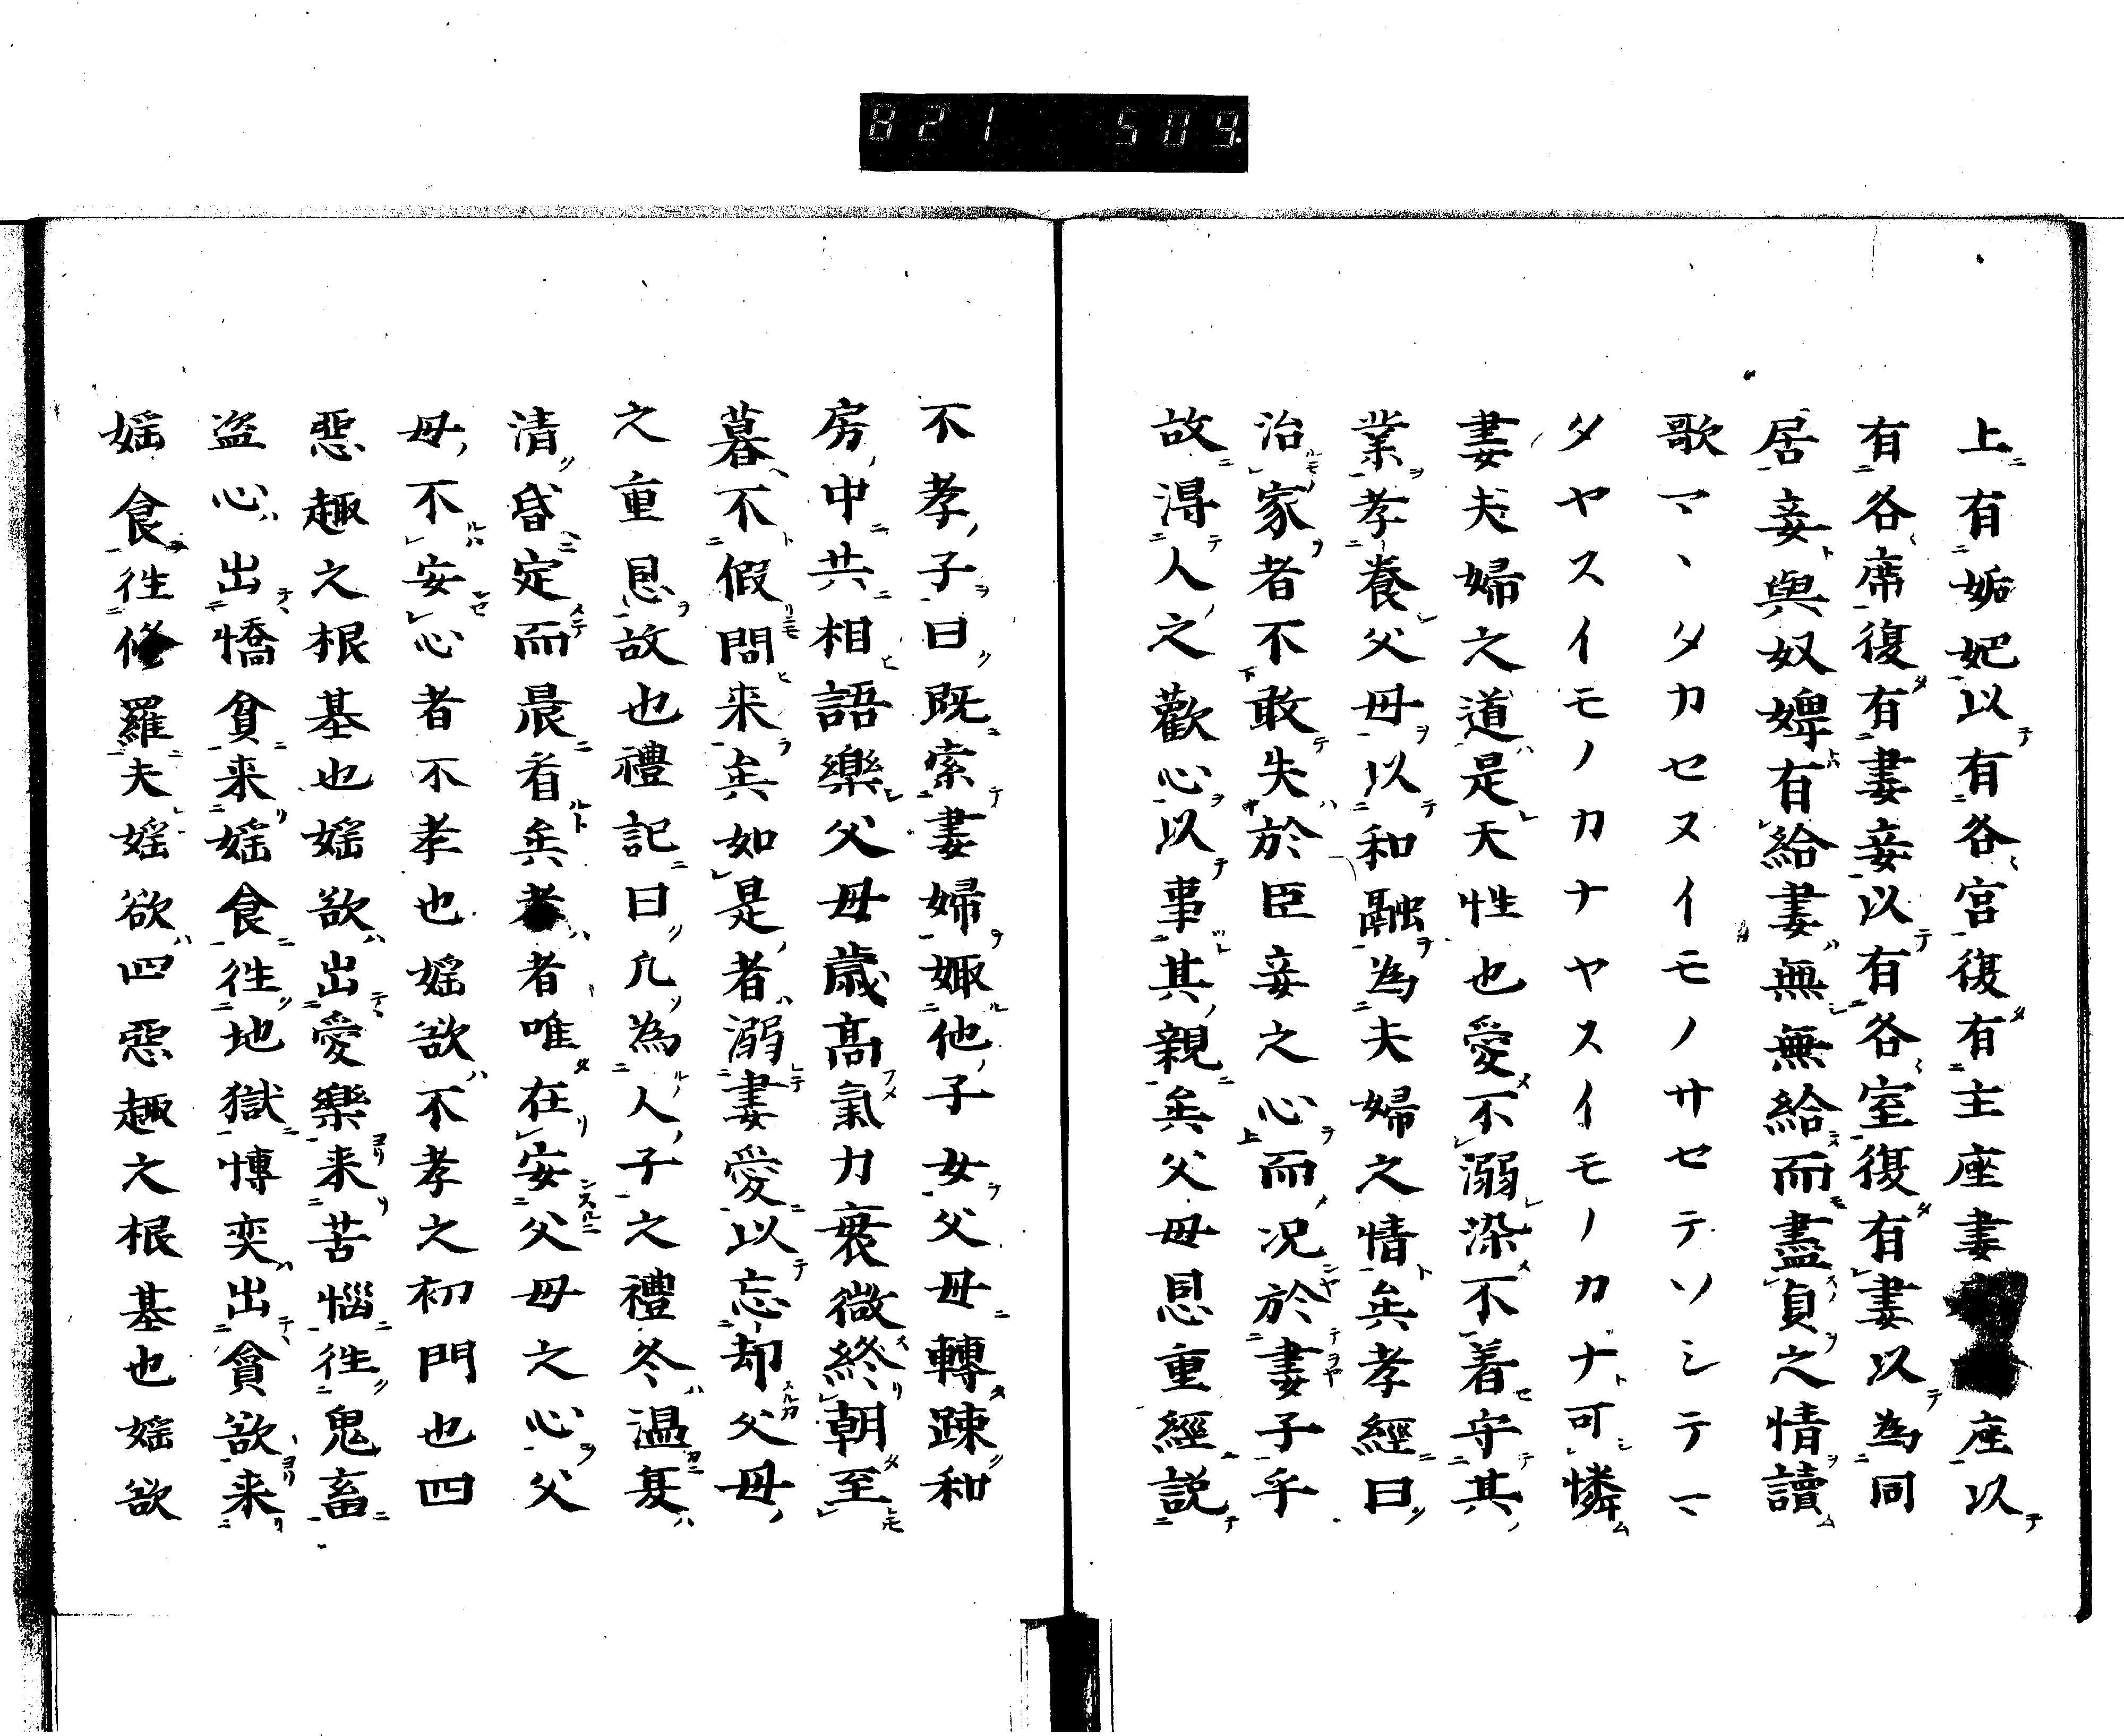 821 509.
上有妬妃以有各宮復有主座妻座以
有各席復有妻妾以有各室復有妻以為同
居妾與奴婢有給妻無無給而盡貞之情讀
歌マヽタカセヌイモノサセテソシテマ
タヤスイモノカナヤスイモノカナ可憐
妻夫婦之道是天性也愛不溺染不着守其
業孝養父母以和融為夫婦之情矣孝經曰
治家者不敢失於臣妾之心而况於妻子乎
故得人之歡心以事其親矣父母恩重經説
不孝子曰既索妻婦娵他子女父母轉疎和
房中共相語樂父母歳高氣力衰微終朝至
暮不假問来矣如是者溺妻愛以忘却父母
之重恩故也禮記曰凢為人子之禮冬温夏
清昏定而晨省矣者唯在安父母之心父
母不安心者不孝也婬欲不孝之初門也四
惡趣之根基也婬欲出愛樂来苦惱徃鬼畜
盗心出憍貧来婬食徃地獄博奕出貪欲来
婬食徃修羅夫婬欲四惡趣之根基也婬欲